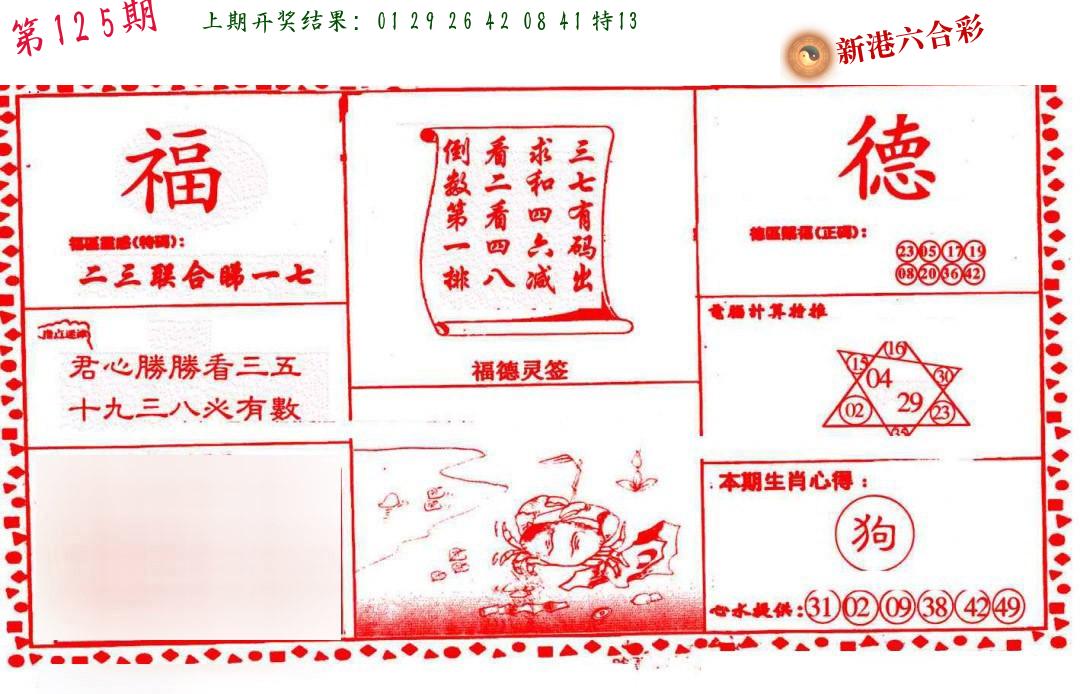 第125期
上期开奖结果：01 29 26 42 08 41 特13
新港六合彩
福
福區靈感(特碼)：
二三联合睇一七
君心勝勝看三五
十九三八必有數
三七有码出
求和四六减
看二看四八
倒数第一排
福德灵签
德
德區靈感(正碼)：
23 05 17 19
08 20 36 42
電腦計算特推
16
15 04 30
02 29 23
35
本期生肖心得：
狗
心水提供：31 02 09 38 42 49